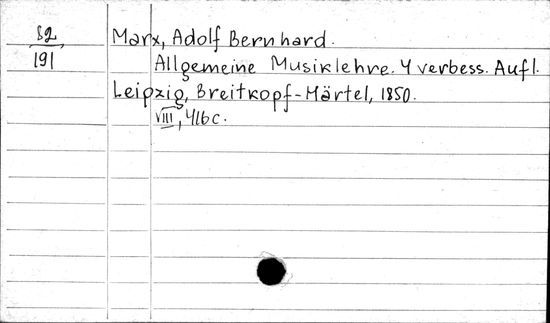 82 Marx, Adolf Bernhard.
191 Allgemeine Musiklehre. 4 verbess. Aufl.
Leipzig, Breitkopf-Härtel, 1850.
VIII, 416c.